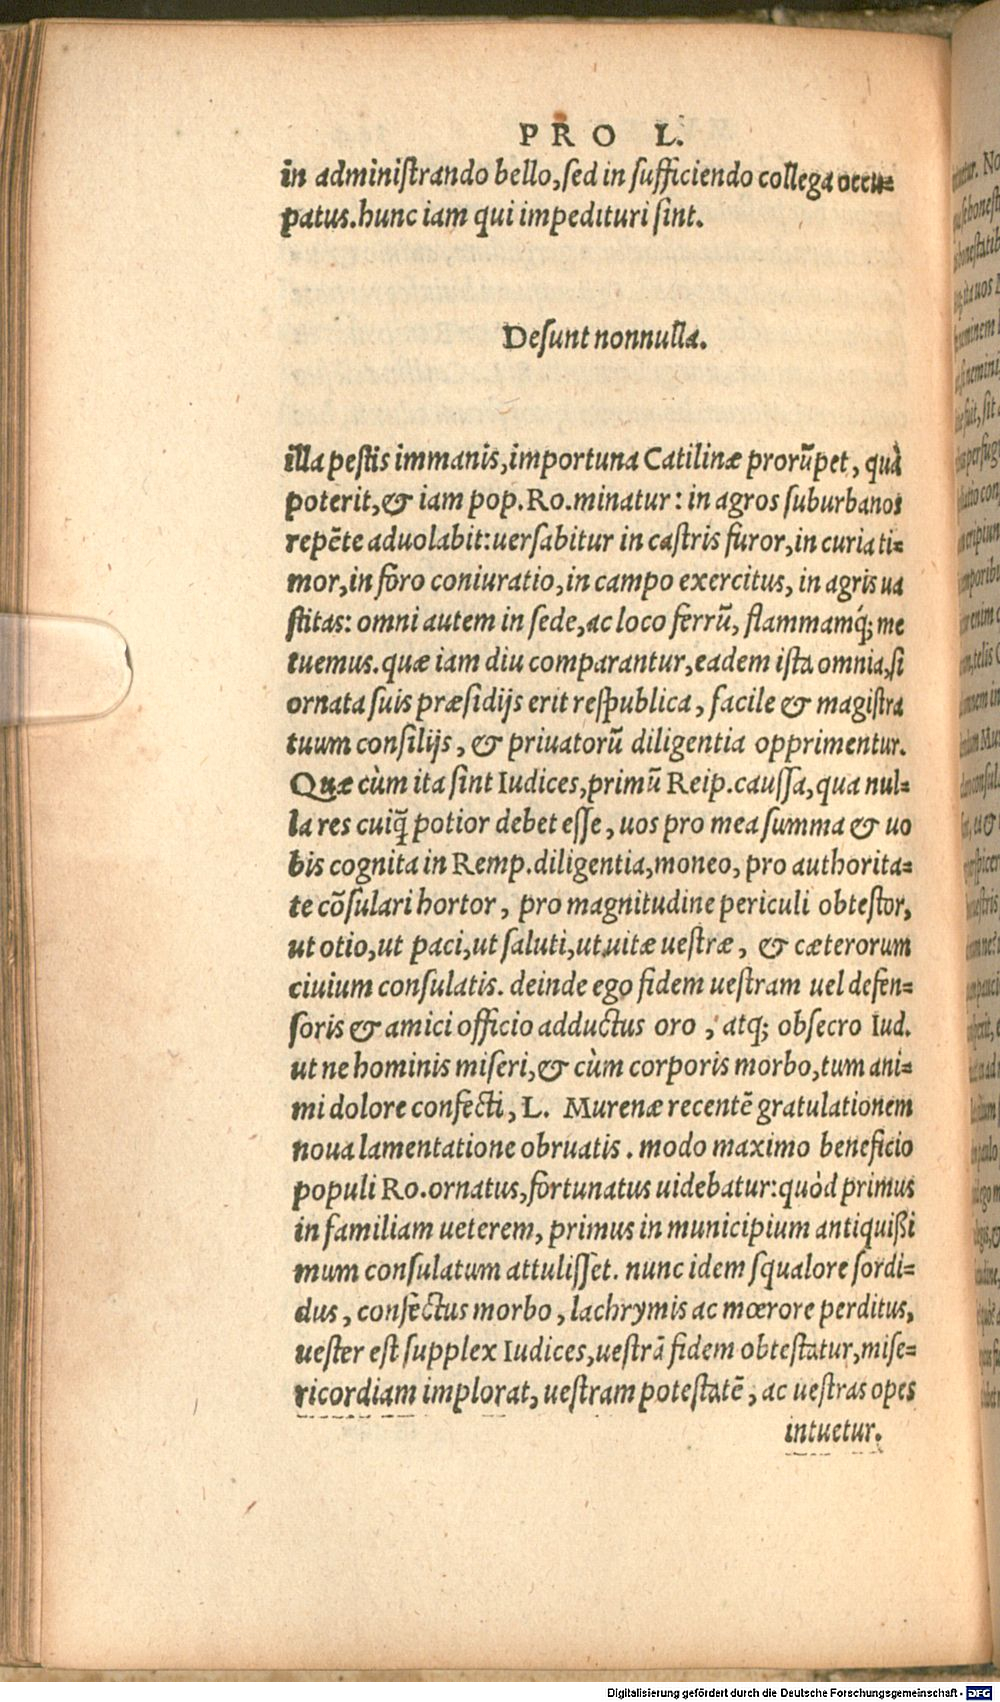 PRO L.
in adminiſtrando bello, ſed in ſufficiendo collega occu=
patus. hunc iam qui impedituri ſint.
Deſunt nonnulla.
illa peſtis immanis, importuna Catilinæ prorūpet, quà
poterit, & iam pop. Ro. minatur: in agros ſuburbanos
repēte aduolabit: uerſabitur in caſtris furor, in curia ti=
mor, in foro coniuratio, in campo exercitus, in agris ua
ſtitas: omni autem in ſede, ac loco ferrū, flammamq́; me
tuemus. quæ iam diu comparantur, eadem iſta omnia, ſi
ornata ſuis præſidijs erit reſpublica, facile & magiſtra
tuum conſilijs, & priuatorū diligentia opprimentur.
Quæ cùm ita ſint Iudices, primū Reip. cauſſa, qua nul=
la res cuiq̄ potior debet eſſe, uos pro mea ſumma & uo
bis cognita in Remp. diligentia, moneo, pro authorita=
te cōſulari hortor, pro magnitudine periculi obteſtor,
ut otio, ut paci, ut ſaluti, ut uitæ ueſtræ, & cæterorum
ciuium conſulatis. deinde ego fidem ueſtram uel defen=
ſoris & amici officio adductus oro, atq; obſecro Iud.
ut ne hominis miſeri, & cùm corporis morbo, tum ani=
mi dolore confecti, L. Murenæ recentē gratulationem
noua lamentatione obruatis. modo maximo beneficio
populi Ro. ornatus, fortunatus uidebatur: quòd primus
in familiam ueterem, primus in municipium antiquißi
mum conſulatum attuliſſet. nunc idem ſqualore ſordi=
dus, confectus morbo, lachrymis ac mœrore perditus,
ueſter eſt ſupplex Iudices, ueſtrā fidem obteſtatur, miſe=
ricordiam implorat, ueſtram poteſtatē, ac ueſtras opes
intuetur.
Digitalisierung gefördert durch die Deutsche Forschungsgemeinschaft - DFG